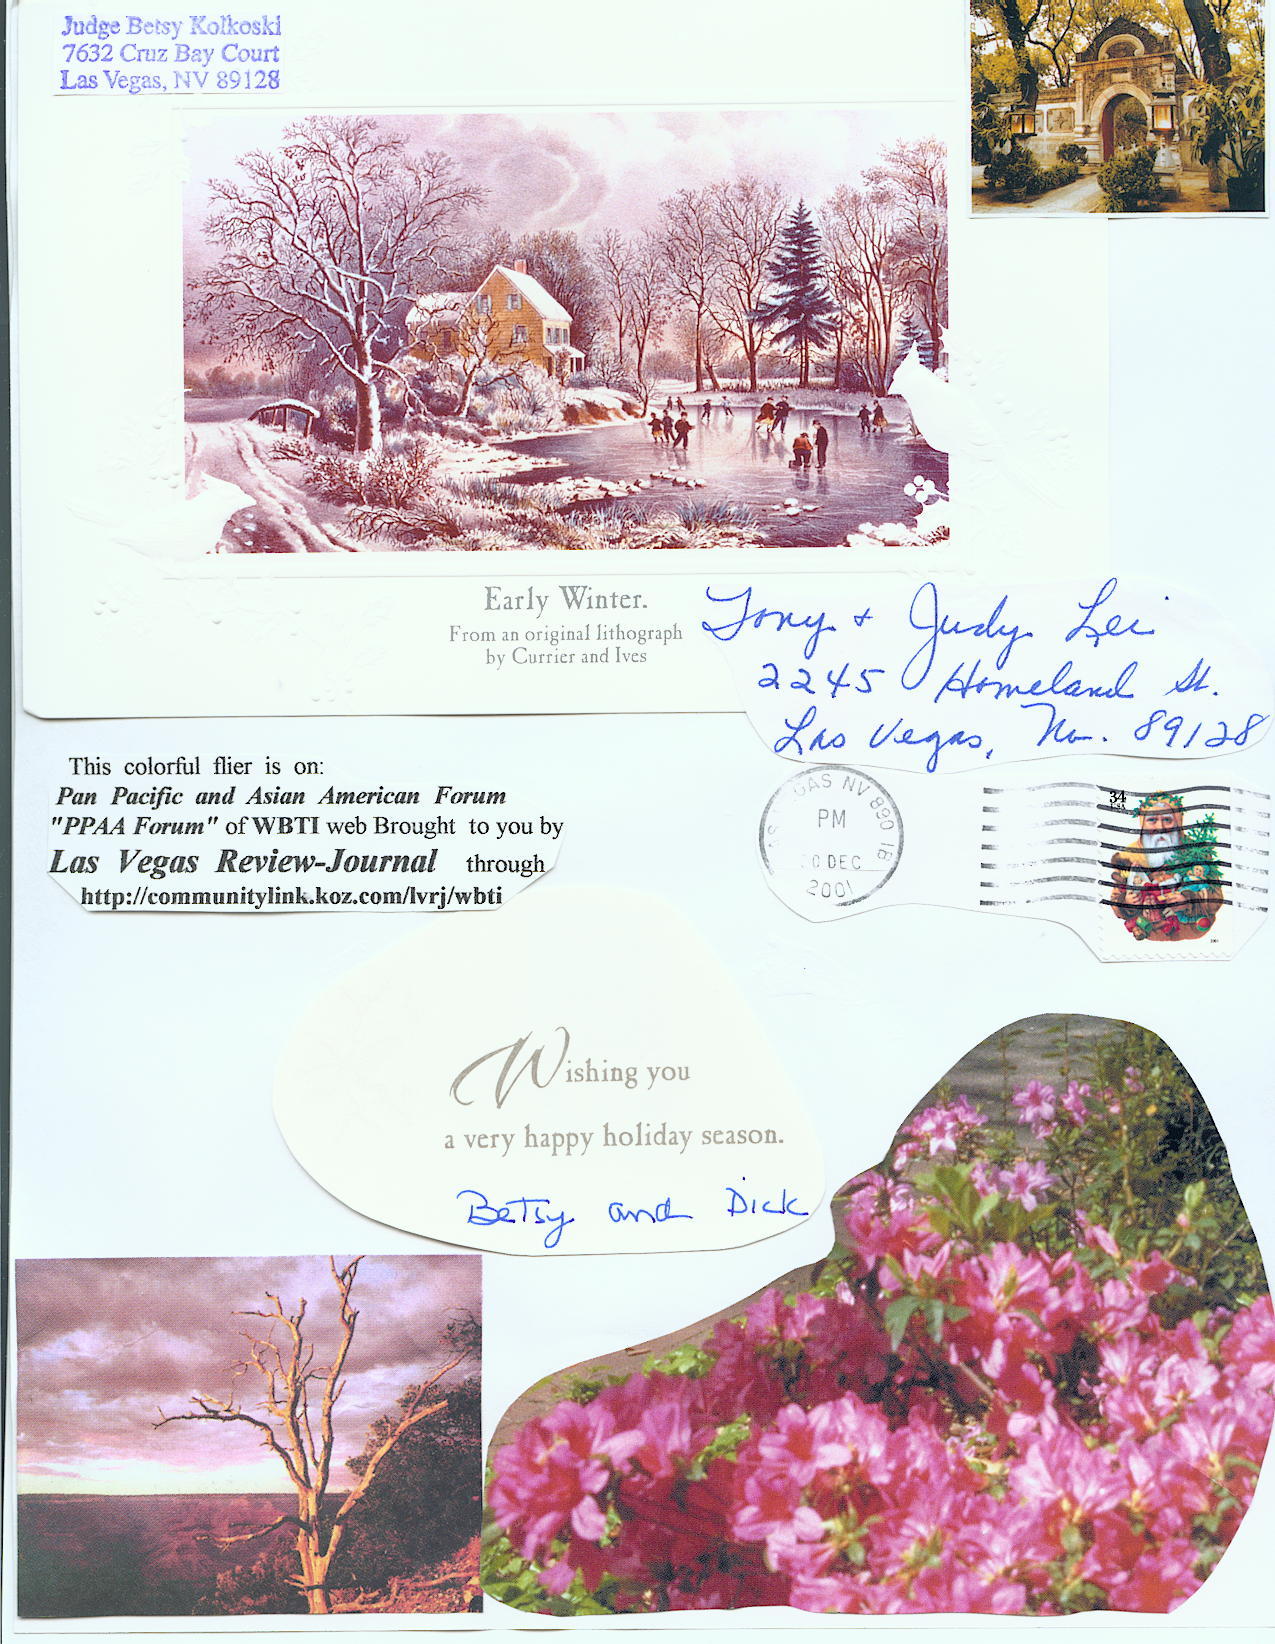 Judge Betsy Kolkoski
7632 Cruz Bay Court
Las Vegas, NV 89128
Early Winter.
From an original lithograph
by Currier and Ives
Tony & Judy Lei
2245 Homeland St.
Las Vegas, Nv. 89128
This colorful flier is on:
Pan Pacific and Asian American Forum
"PPAA Forum" of WBTI web Brought to you by
Las Vegas Review-Journal through
http://communitylink.koz.com/lvrj/wbti
GAS NV 890
PM
DEC
2001
34
USA
Wishing you
a very happy holiday season.
Betsy and Dick